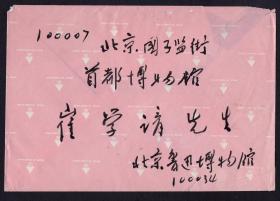 100007
北京国子监街
首都博物馆
崔学谙先生
北京鲁迅博物馆
100034